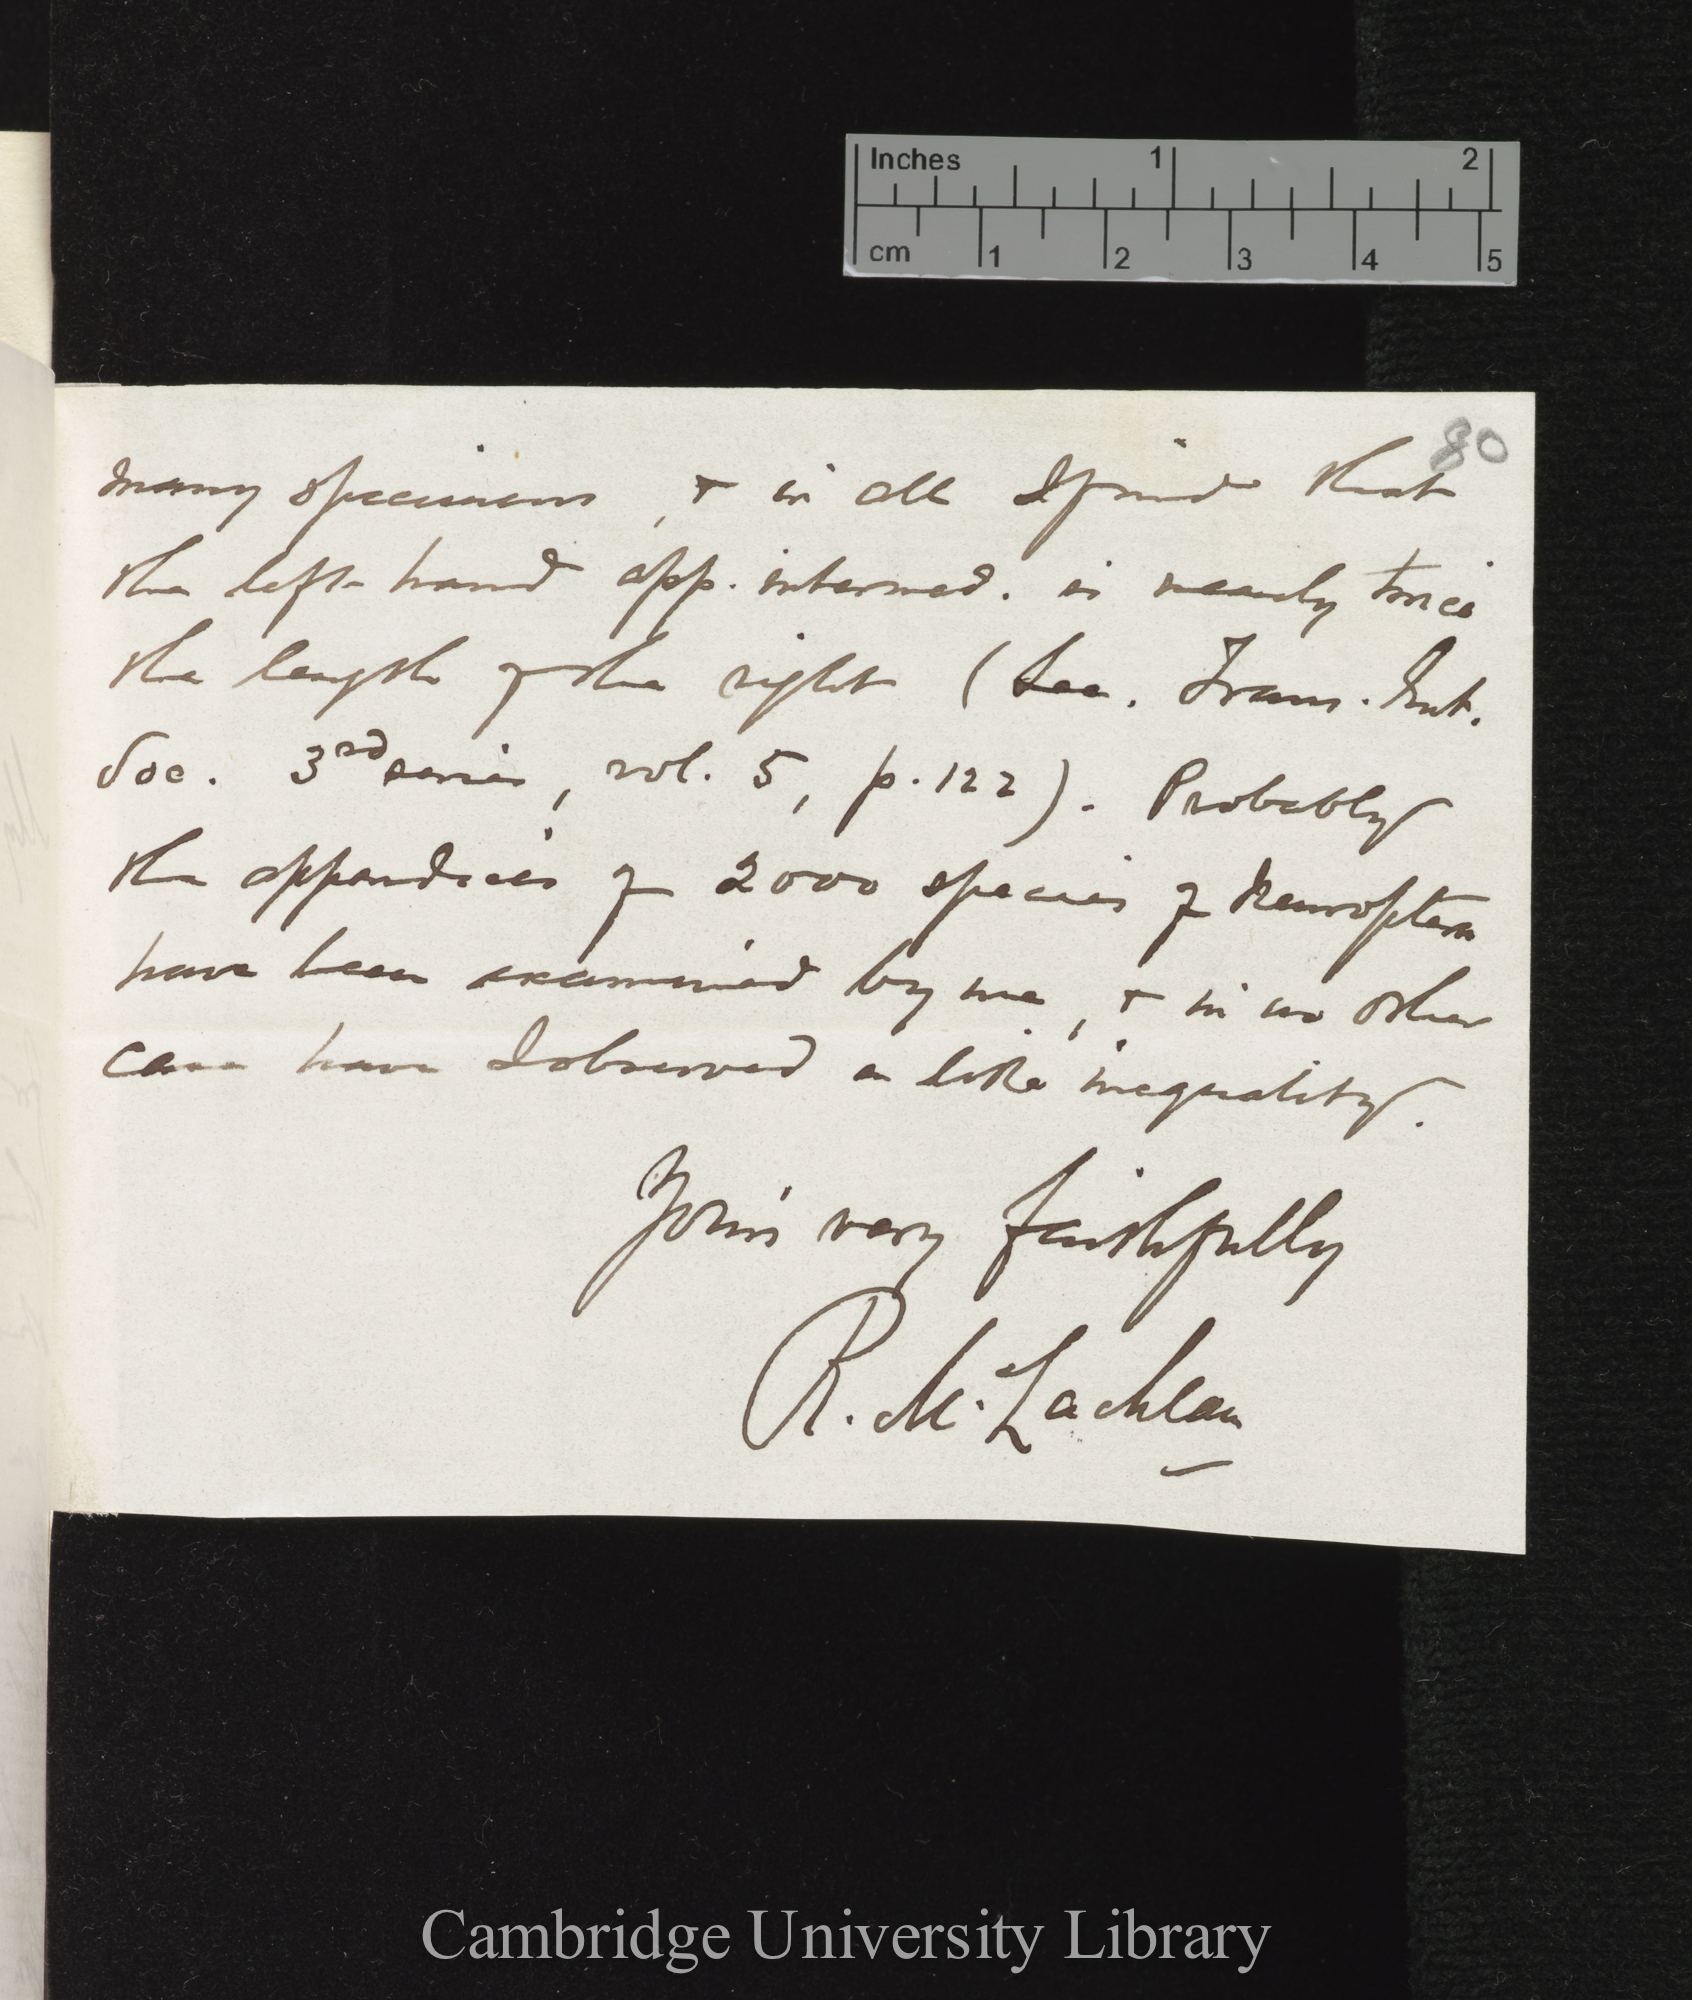 Inches 1 2
cm 1 2 3 4 5
80
many specimens, & in all I find that
the left-hand app. intermed. is nearly twice
the length of the right (See. Trans. Ent.
Soc. 3rd series, vol. 5, p. 122). Probably
the appendices of 2000 species of Neuroptera
have been examined by me, & in no other
case have I observed a like inequality.
Yours very faithfully
R. Mc.Lachlan
Cambridge University Library